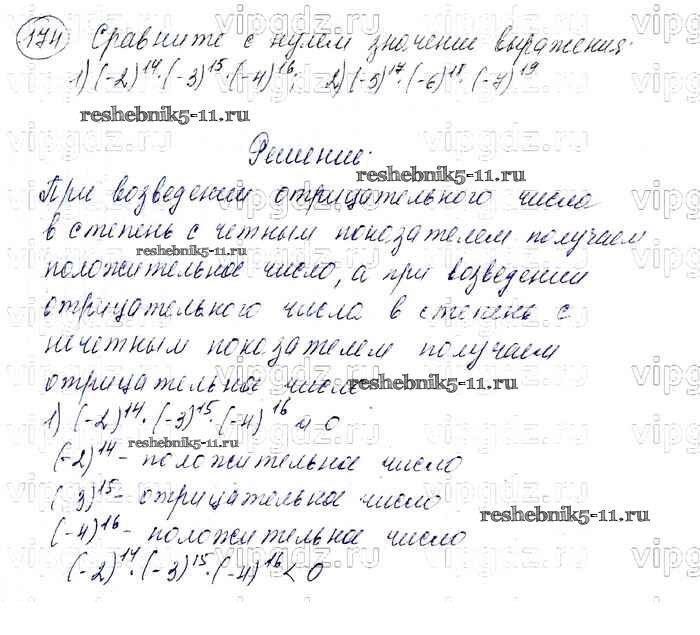 174 Сравните с нулем значение выражения:
1) (-2)^14 · (-3)^15 · (-4)^16; 2) (-5)^17 · (-6)^18 · (-7)^19
reshebnik5-11.ru
Решение.
reshebnik5-11.ru
При возведении отрицательного числа
в степень с четным показателем получаем
reshebnik5-11.ru
положительное число, а при возведении
отрицательного числа в степень с
нечетным показателем получаем
отрицательное число
reshebnik5-11.ru
1) (-2)^14 · (-3)^15 · (-4)^16 и 0
reshebnik5-11.ru
(-2)^14 - положительное число
(-3)^15 - отрицательное число
reshebnik5-11.ru
(-4)^16 - положительное число
(-2)^14 · (-3)^15 · (-4)^16 < 0
vipgdz.ru